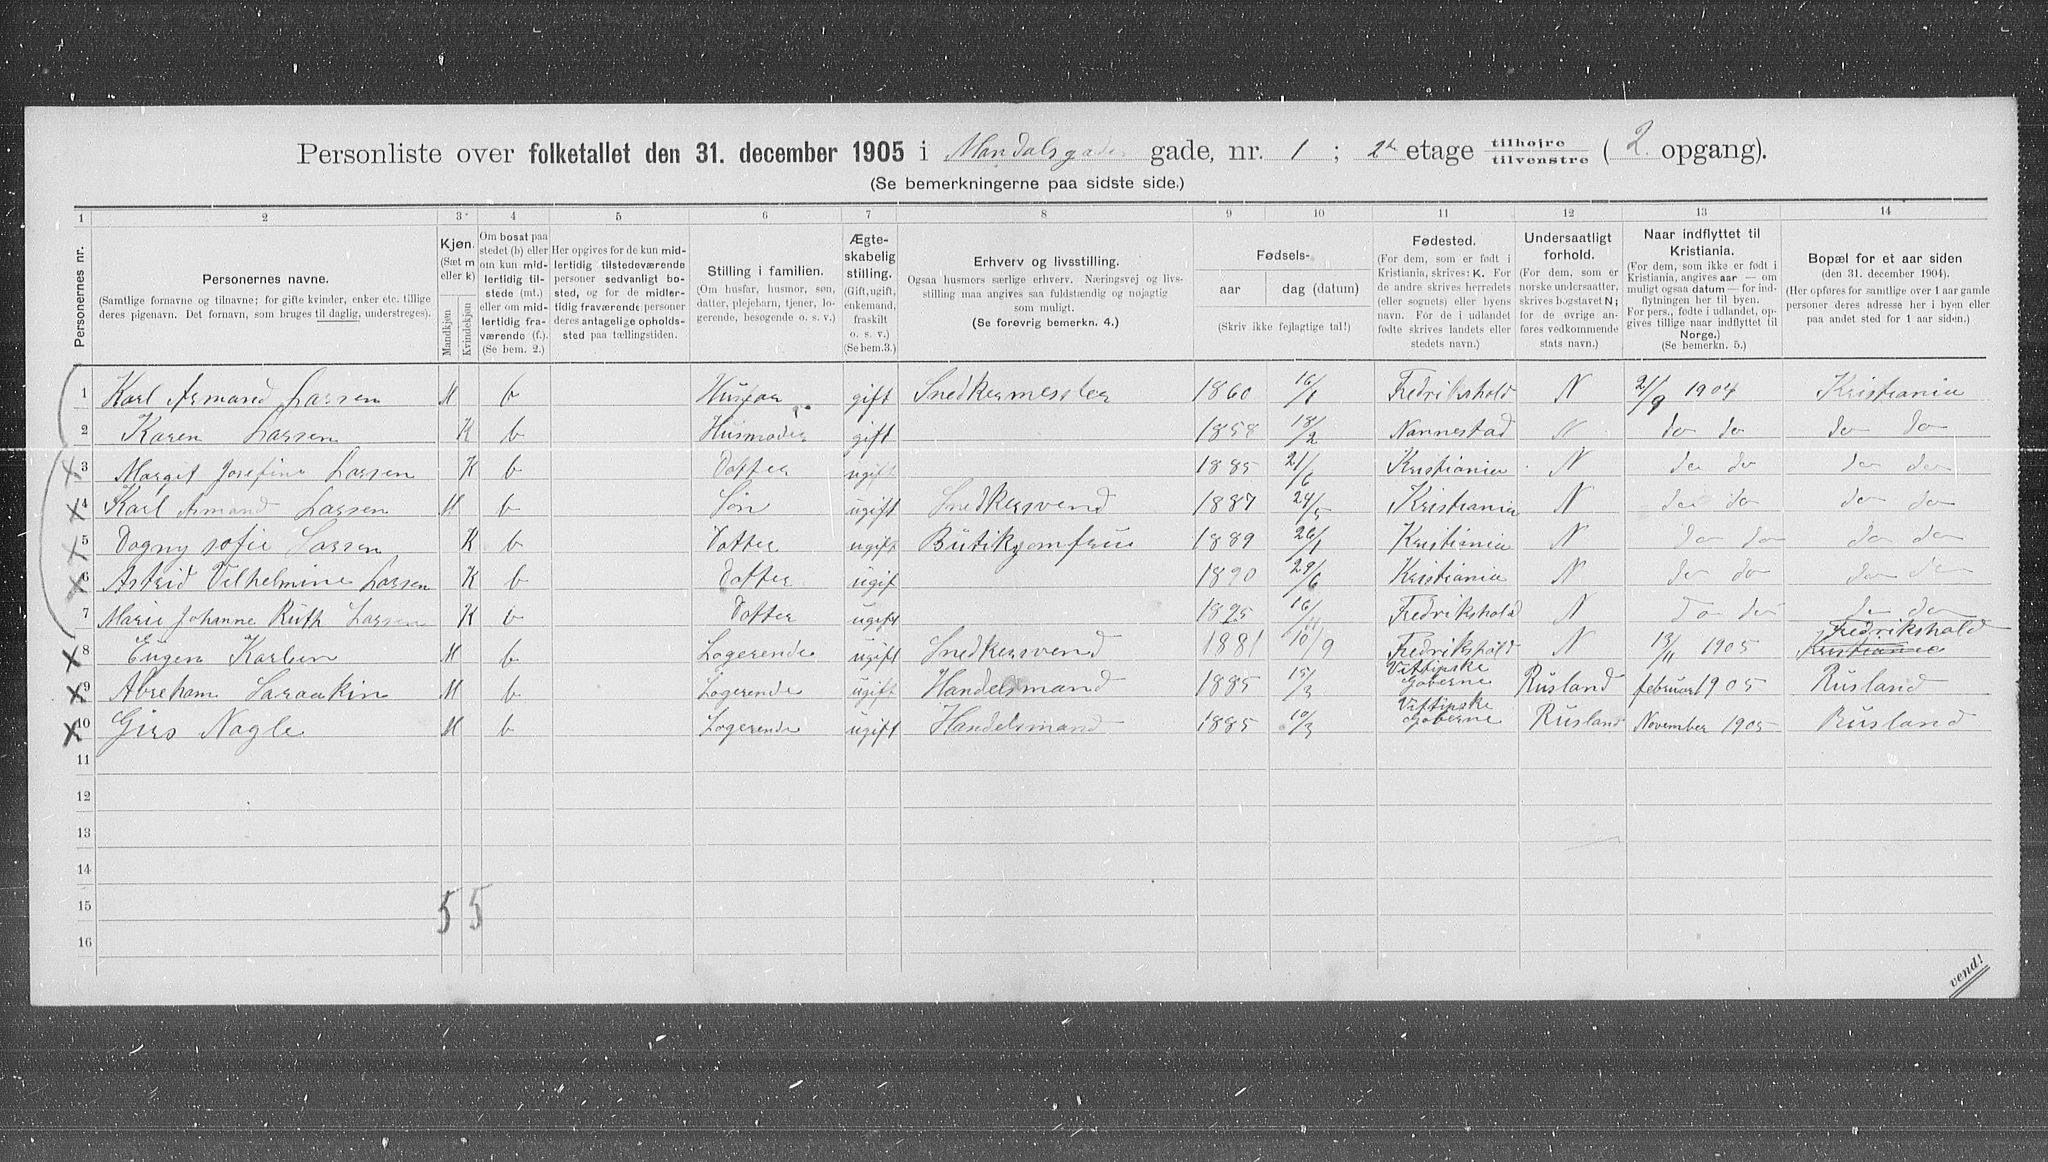 Personliste over folketallet den 31. december 1905 i Mandalsgaden gade, nr. 1 ; 2den etage tilhøjre tilvenstre ( 2. opgang).
(Se bemerkningerne paa sidste side.)
1 2 3 4 5 6 7 8 9 10 11 12 13 14
Personernes nr.
Personernes navne.
(Samtlige fornavne og tilnavne; for gifte kvinder, enker etc. tillige
deres pigenavn. Det fornavn, som bruges til daglig, understreges).
Kjøn.
(Sæt m
eller k)
Mandkjøn
Kvindekjøn
Om bosat paa
stedet (b) eller
om kun mid-
lertidig til-
stede (mt.)
eller om mid-
lertidig fra-
værende (f.).
(Se bem. 2.)
Her opgives for de kun mid-
lertidig tilstedeværende
personer sedvanligt bo-
sted, og for de midler-
tidig fraværende personer
deres antagelige opholds-
sted paa tællingstiden.
Stilling i familien.
(Om husfar, husmor, søn,
datter, plejebarn, tjener, lo-
gerende, besøgende o. s. v.)
Ægte-
skabelig
stilling.
(Gift, ugift,
enkemand,
fraskilt
o. s. v.)
(Se bem.3.)
Erhverv og livsstilling.
Ogsaa husmors særlige erhverv. Næringsvej og livs-
stilling maa angives saa fuldstændig og nøjagtig
som muligt.
(Se forøvrig bemerkn. 4.)
Fødsels-
aar dag (datum)
(Skriv ikke fejlagtige tal!)
Fødested.
(For dem, som er født i
Kristiania, skrives: K. For
de andre skrives herredets
(eller sognets) eller byens
navn. For de i udlandet
fødte skrives landets eller
stedets navn.)
Undersaatligt
forhold.
(For dem, som er
norske undersaatter,
skrives bogstavet N;
for de øvrige an-
føres vedkommende
stats navn.)
Naar indflyttet til
Kristiania.
(For dem, som ikke er født i
Kristiania, angives aar — om
muligt ogsaa datum — for ind-
flytningen her til byen.
For pers., fødte i udlandet, op-
gives tillige naar indflyttet til
Norge.)
(Se bemerkn. 5.)
Bopæl for et aar siden
(den 31. december 1904).
(Her opføres for samtlige over 1 aar gamle
personer deres adresse her i byen eller
paa andet sted for 1 aar siden.)
1 Karl Armand Larsen M b Husfar gift Snedkermester 1860 16/1 Fredrikshald N 21/9 1904 Kristiania
2 Karen Larsen K b Husmoder gift 1858 18/2 Nannestad N do do do do
3 Margit Josefine Larsen K b Datter ugift 1885 21/6 Kristiania N do do do do
4 Karl Armand Larsen M b Søn ugift Snedkersvend 1887 24/5 Kristiania N do do do do
5 Dagny sofie Larsen K b Datter ugift Butikjomfru 1889 26/1 Kristiania N do do do do
6 Astrid Vilhelmine Larsen K b Datter ugif 1890 29/6 Kristiania N do do do do
7 Marie Johanne Ruth Larsen K b Datter ugift 1895 16/11 Fredrikshald N do do do do
8 Eugen Karlsen M b Logerende ugift Snedkersvend 1881 10/9 Fredrikshald N 13/11 1905 Fredrikshald Kristiania
9 Abreham M b Logerende ugift Handelsmand 1885 15/3 Vittipske Goberne Rusland februar 1905 Rusland
10 Girs Nagle M b Logerende ugift Handelsmand 1885 10/3 Vittipske Goberne Rusland November 1905 Rusland
11
12
13
14
15
16
5 5
vend!